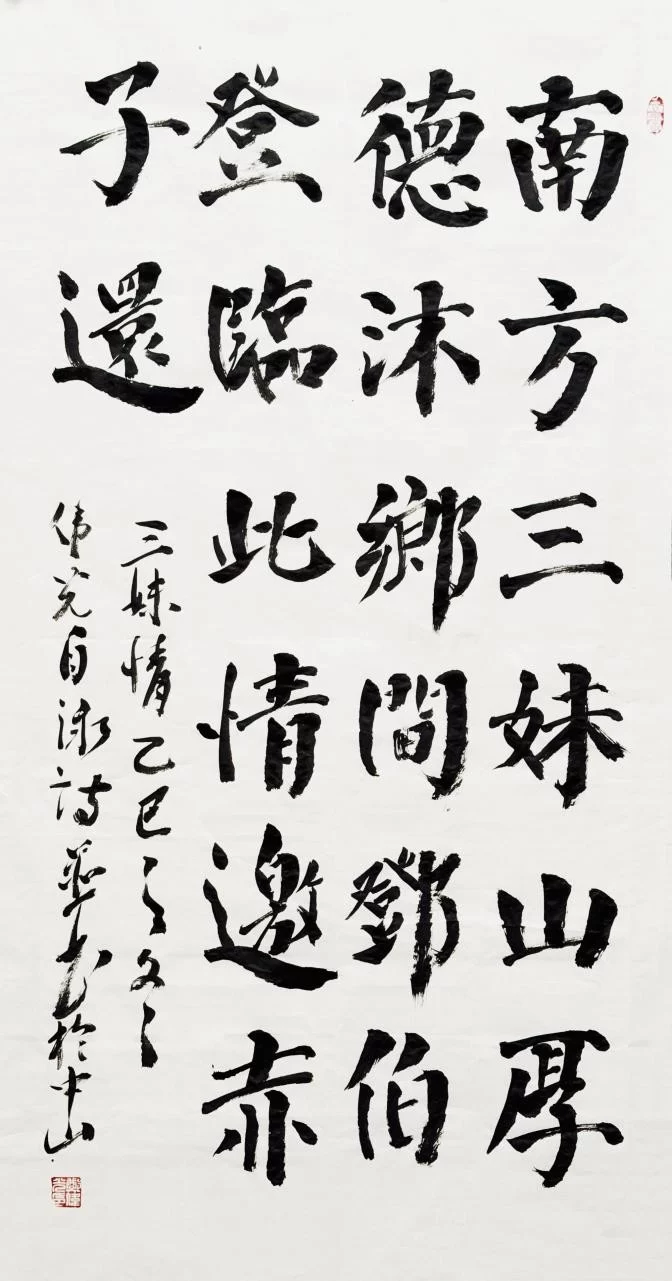 南方三妹山厚
德沐鄉間鄧伯
登臨此情邀赤
子還
三妹情乙巳之
伟光自詠詩並书於中山